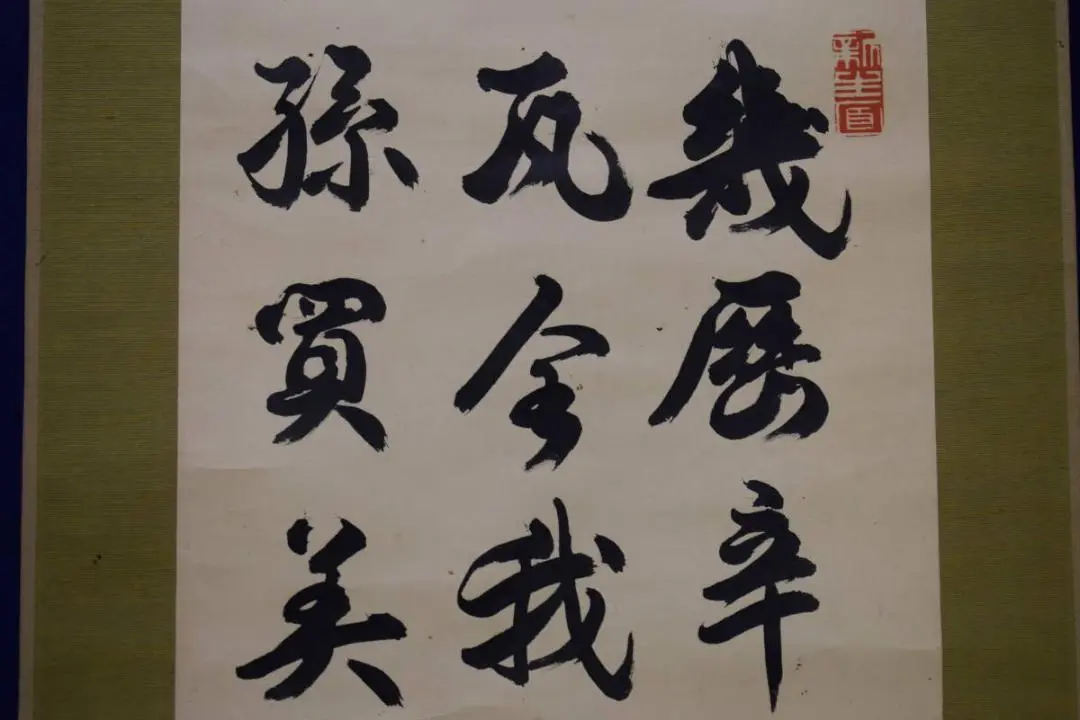 幾歷辛
瓦全我
孫買美